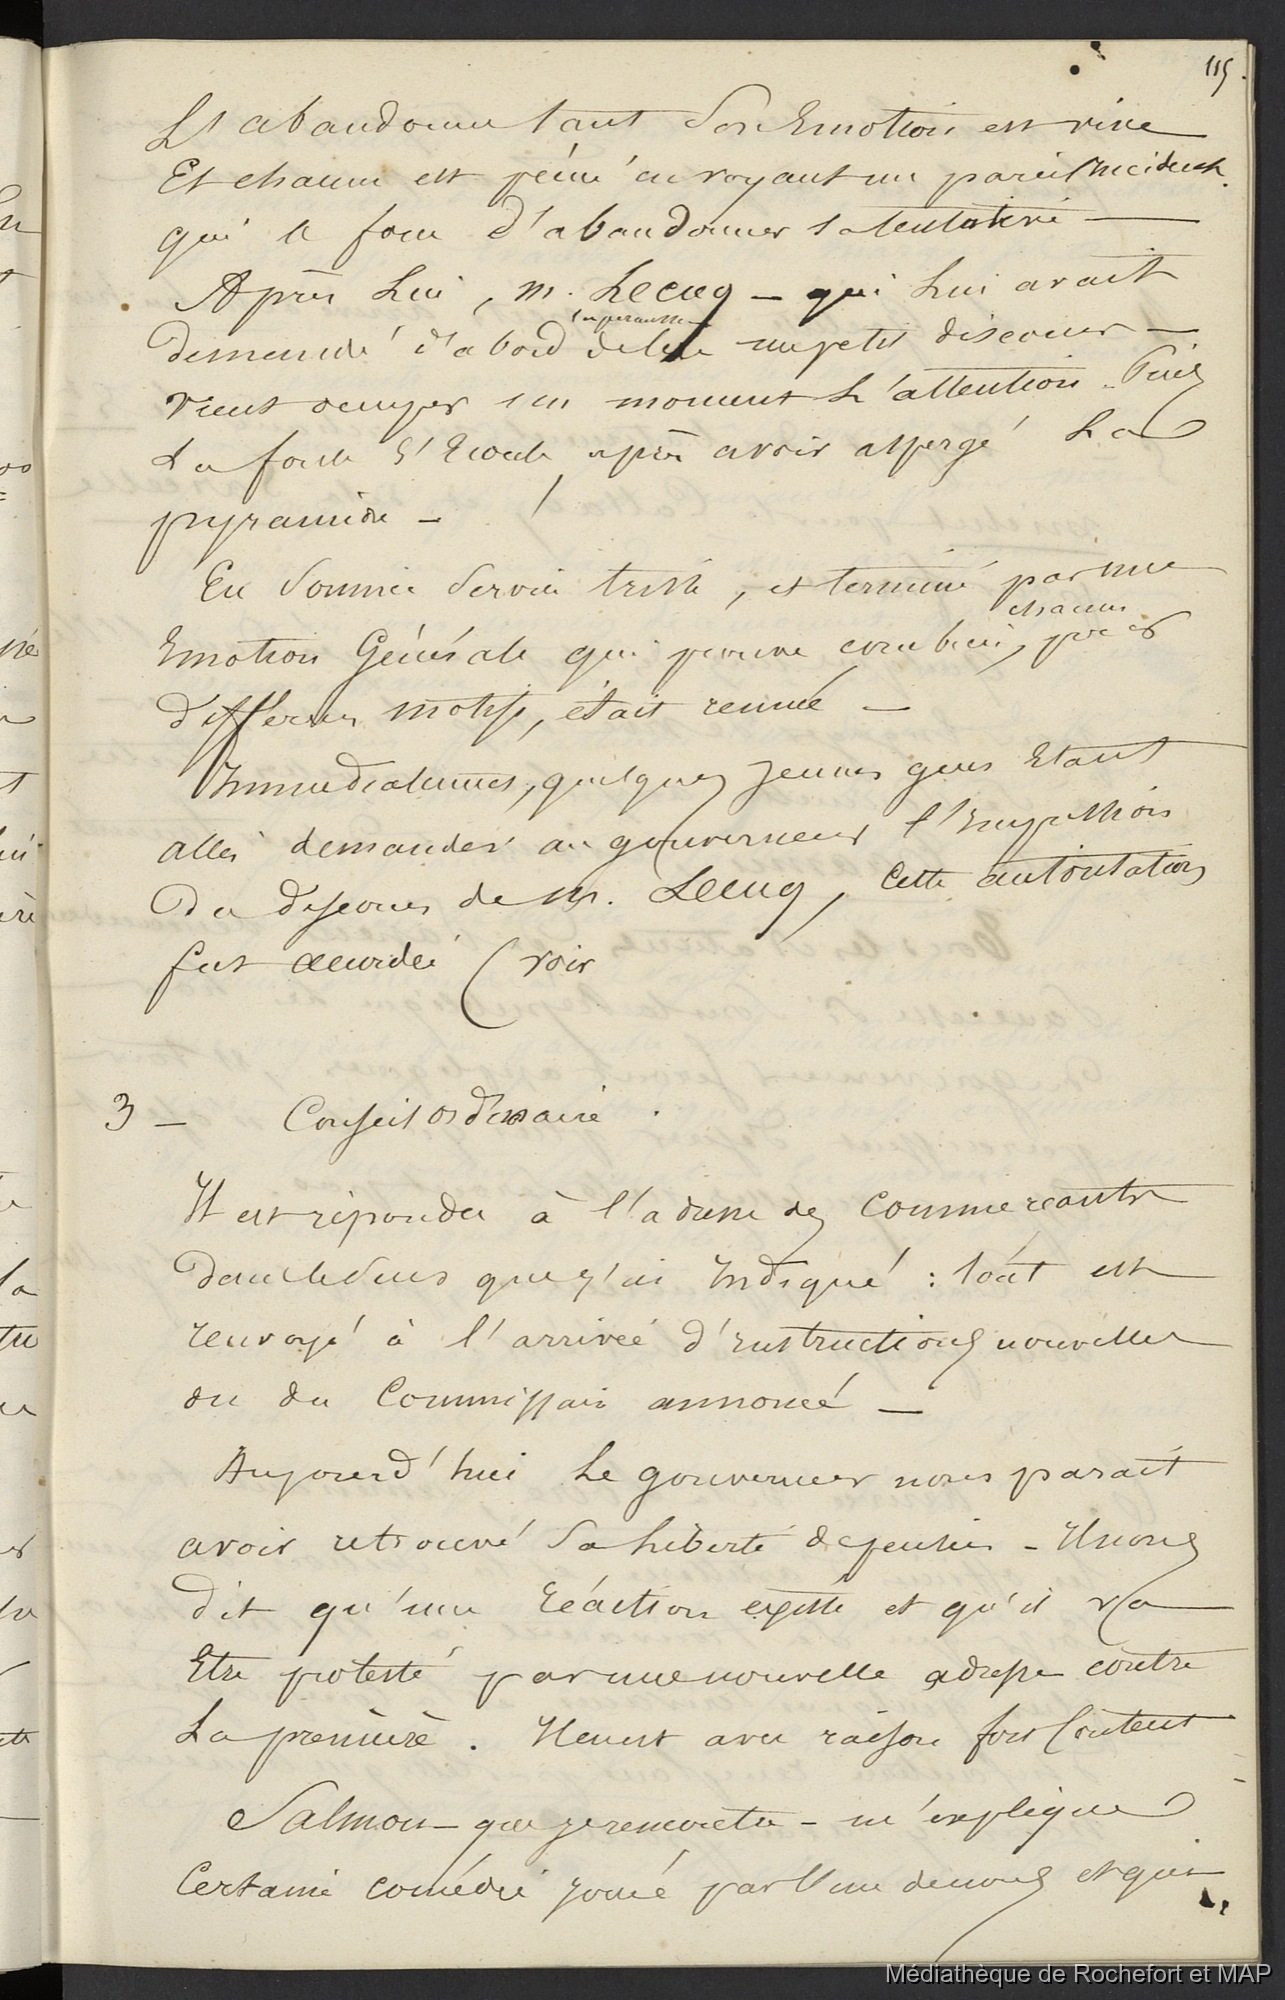 115.
Et abandonne tant son Emotion est vive
Et chacun est peiné en voyant un pareil Incident
qui le force d'abandonner sa tentative —
Après Lui, M. Lecucq — qui Lui avait
demandé d'abord de lire un petit discours —
vient occuper un moment L'attention. Puis
La foule S'Ecoule après avoir aspergé La
pyramide —
En Somme Service triste, et terminé par une
chacun
Emotion Générale qui prouve combien, par
differens motifs, était remué —
Immediatement, quelques Jeunes gens Etant
allés demander au gouverneur l'Impression
Du discours de M. Lecucq, Cette autorisation
fut accordée (voir
3 — Conseil ordinaire.
Il est répondu à l'adresse des Commercants
dans le sens que j'ai Indiqué : tout est
renvoyé à l'arrivée d'Instructions nouvelles
ou du Commissaire annoncé —
Aujourd'hui Le gouverneur nous parait
avoir retrouvé Sa Liberté de penser — Il nous
dit qu'une Réaction existe et qu'il va
Etre protesté par une nouvelle adresse contre
La première. Il en est avec raison fort Content
Salmon — que je rencontre — m'explique
Certaine comédie jouée par l'un de nous et qui
Médiathèque de Rochefort et MAP